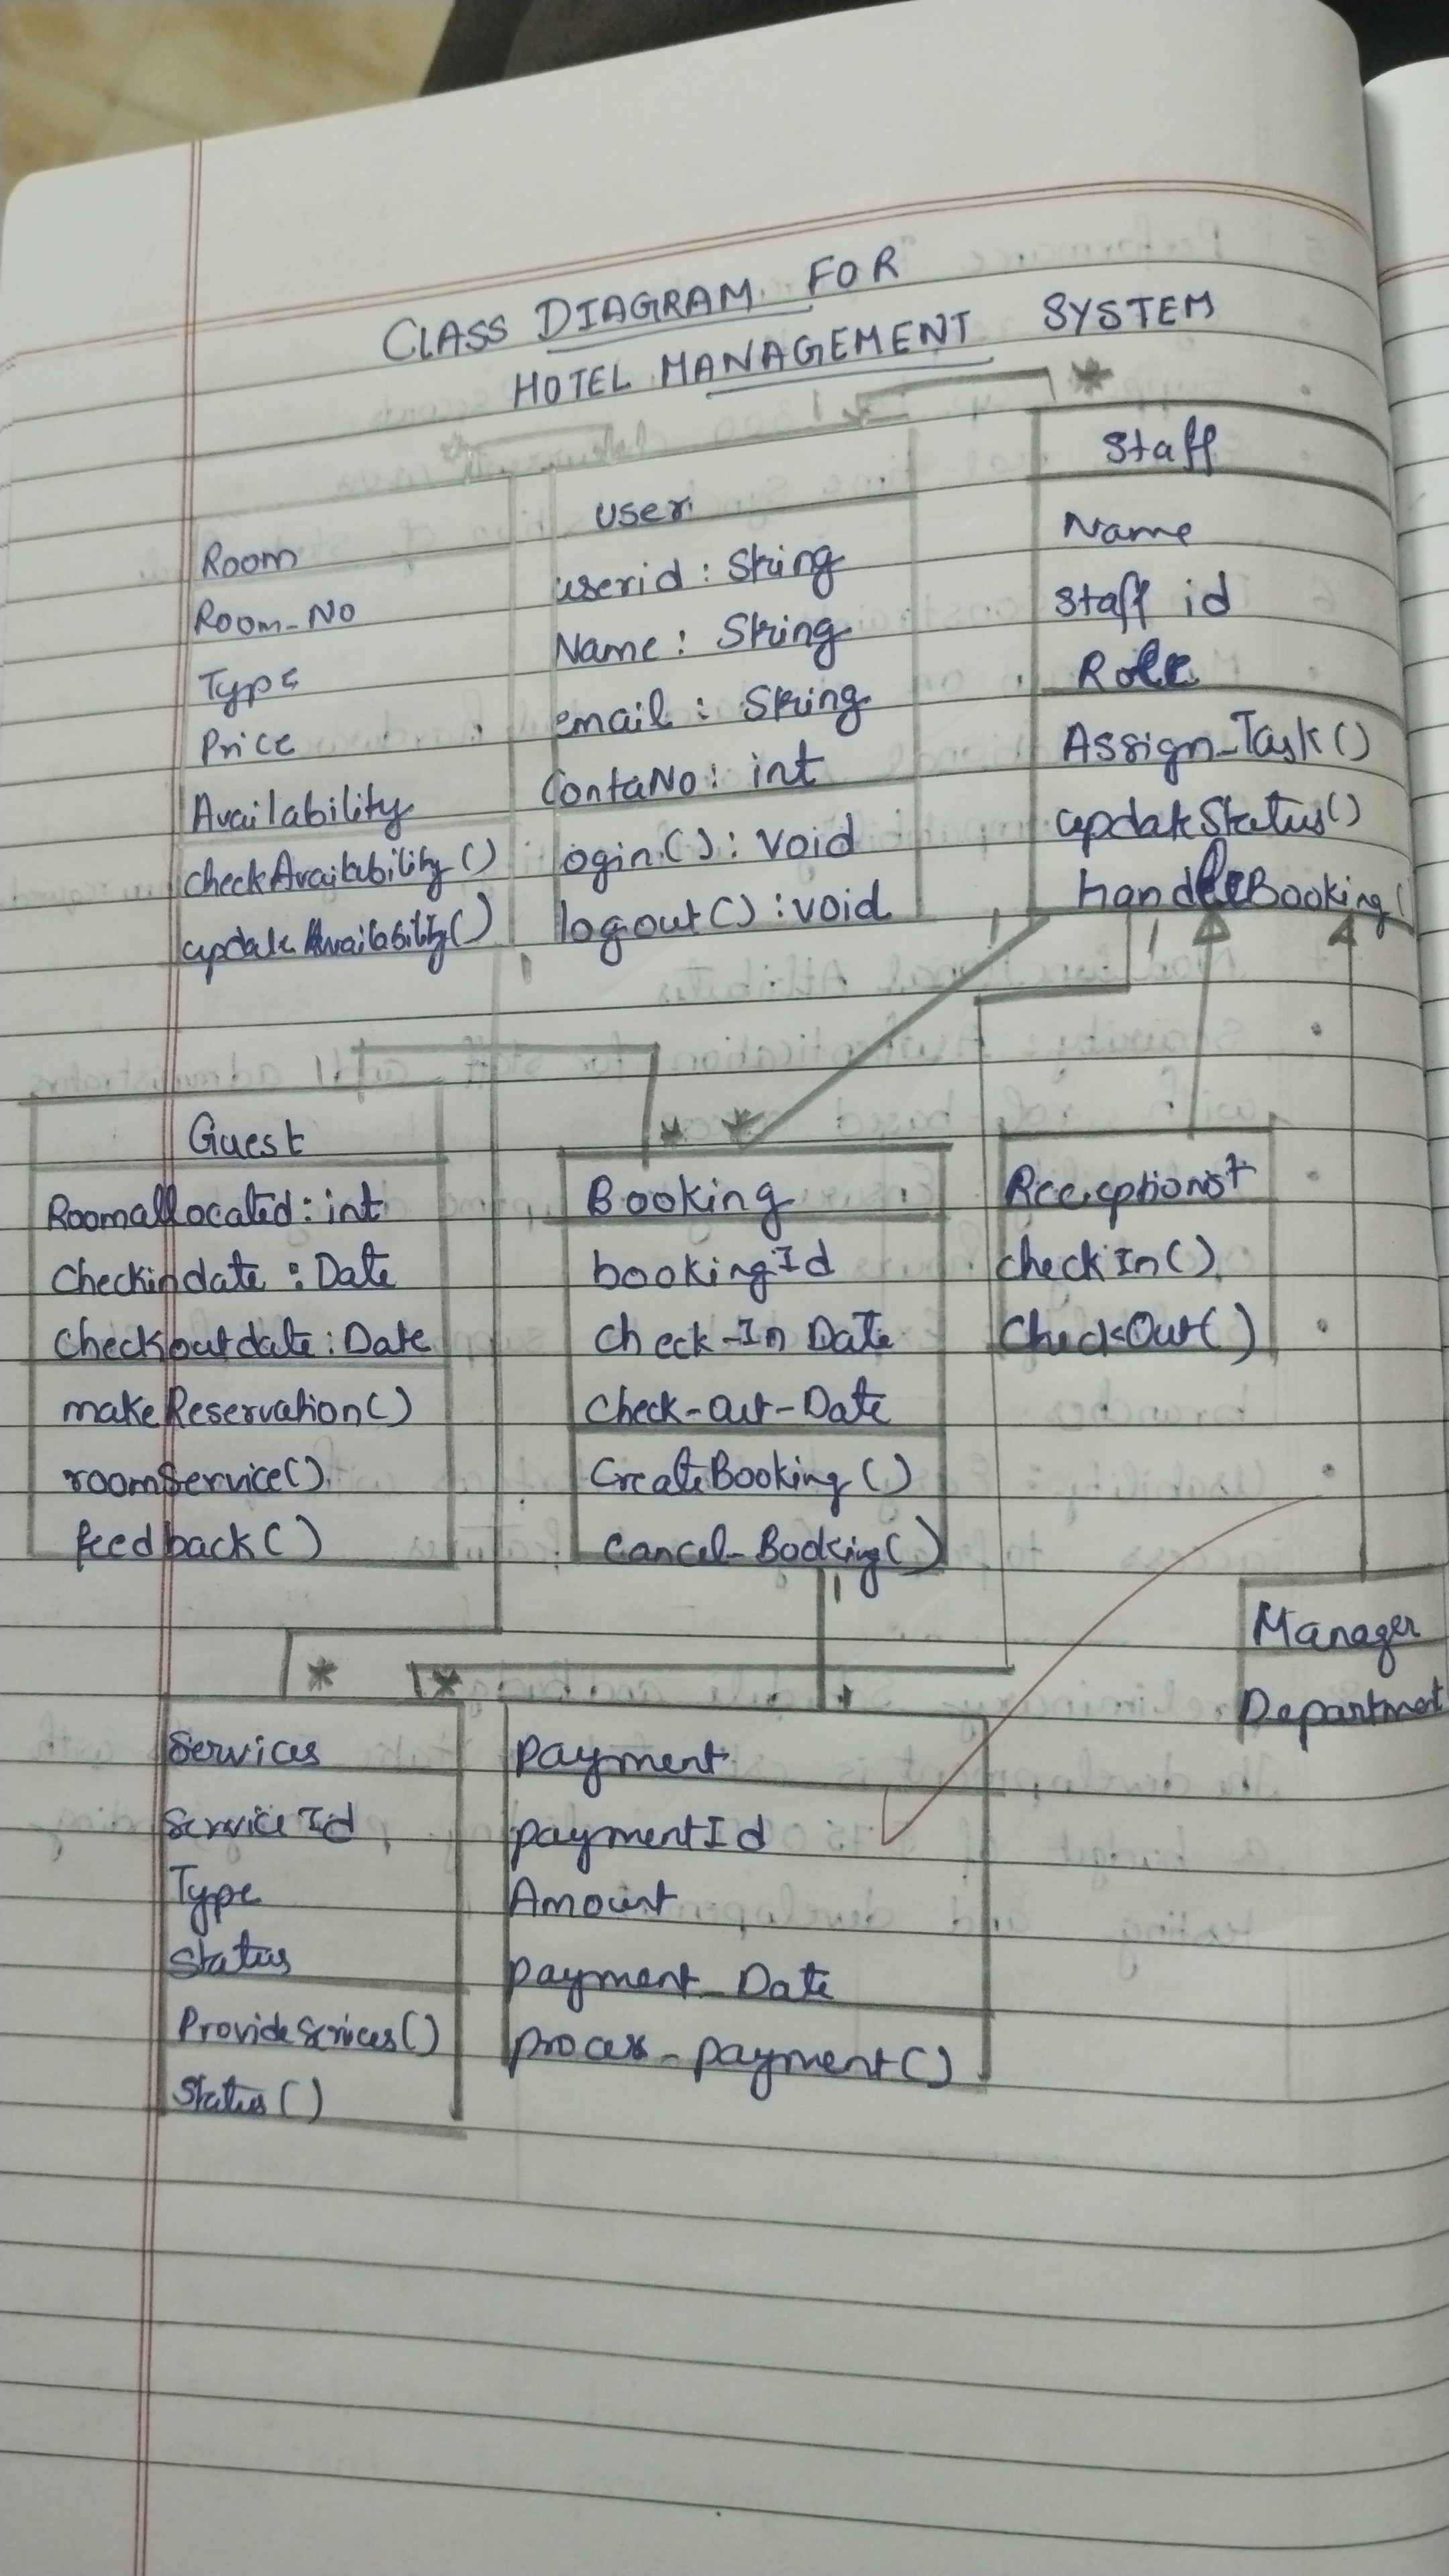 CLASS DIAGRAM FOR
HOTEL MANAGEMENT SYSTEM
Room
Room_No
Type
Price
Availability
checkAvailability()
update Availability()
user
userid : String
Name : String
email : String
ContaNo : int
login() : void
logout() : void
1
*
Staff
Name
Staff id
Role
Assign_Task()
updateStatus()
handleBooking()
1
1
1
Guest
Roomallocated : int
Checkindate : Date
Checkoutdate : Date
makeReservation()
roomService()
feedback()
* *
Booking
bookingId
Check-In Date
Check-out-Date
CreateBooking()
Cancel-Booking()
1
Receptionst
checkIn()
CheckOut()
Manager
Department
* *
Services
Service Id
Type
Status
ProvideServices()
Status()
1
Payment
paymentId
Amount
payment_Date
proces_payment()